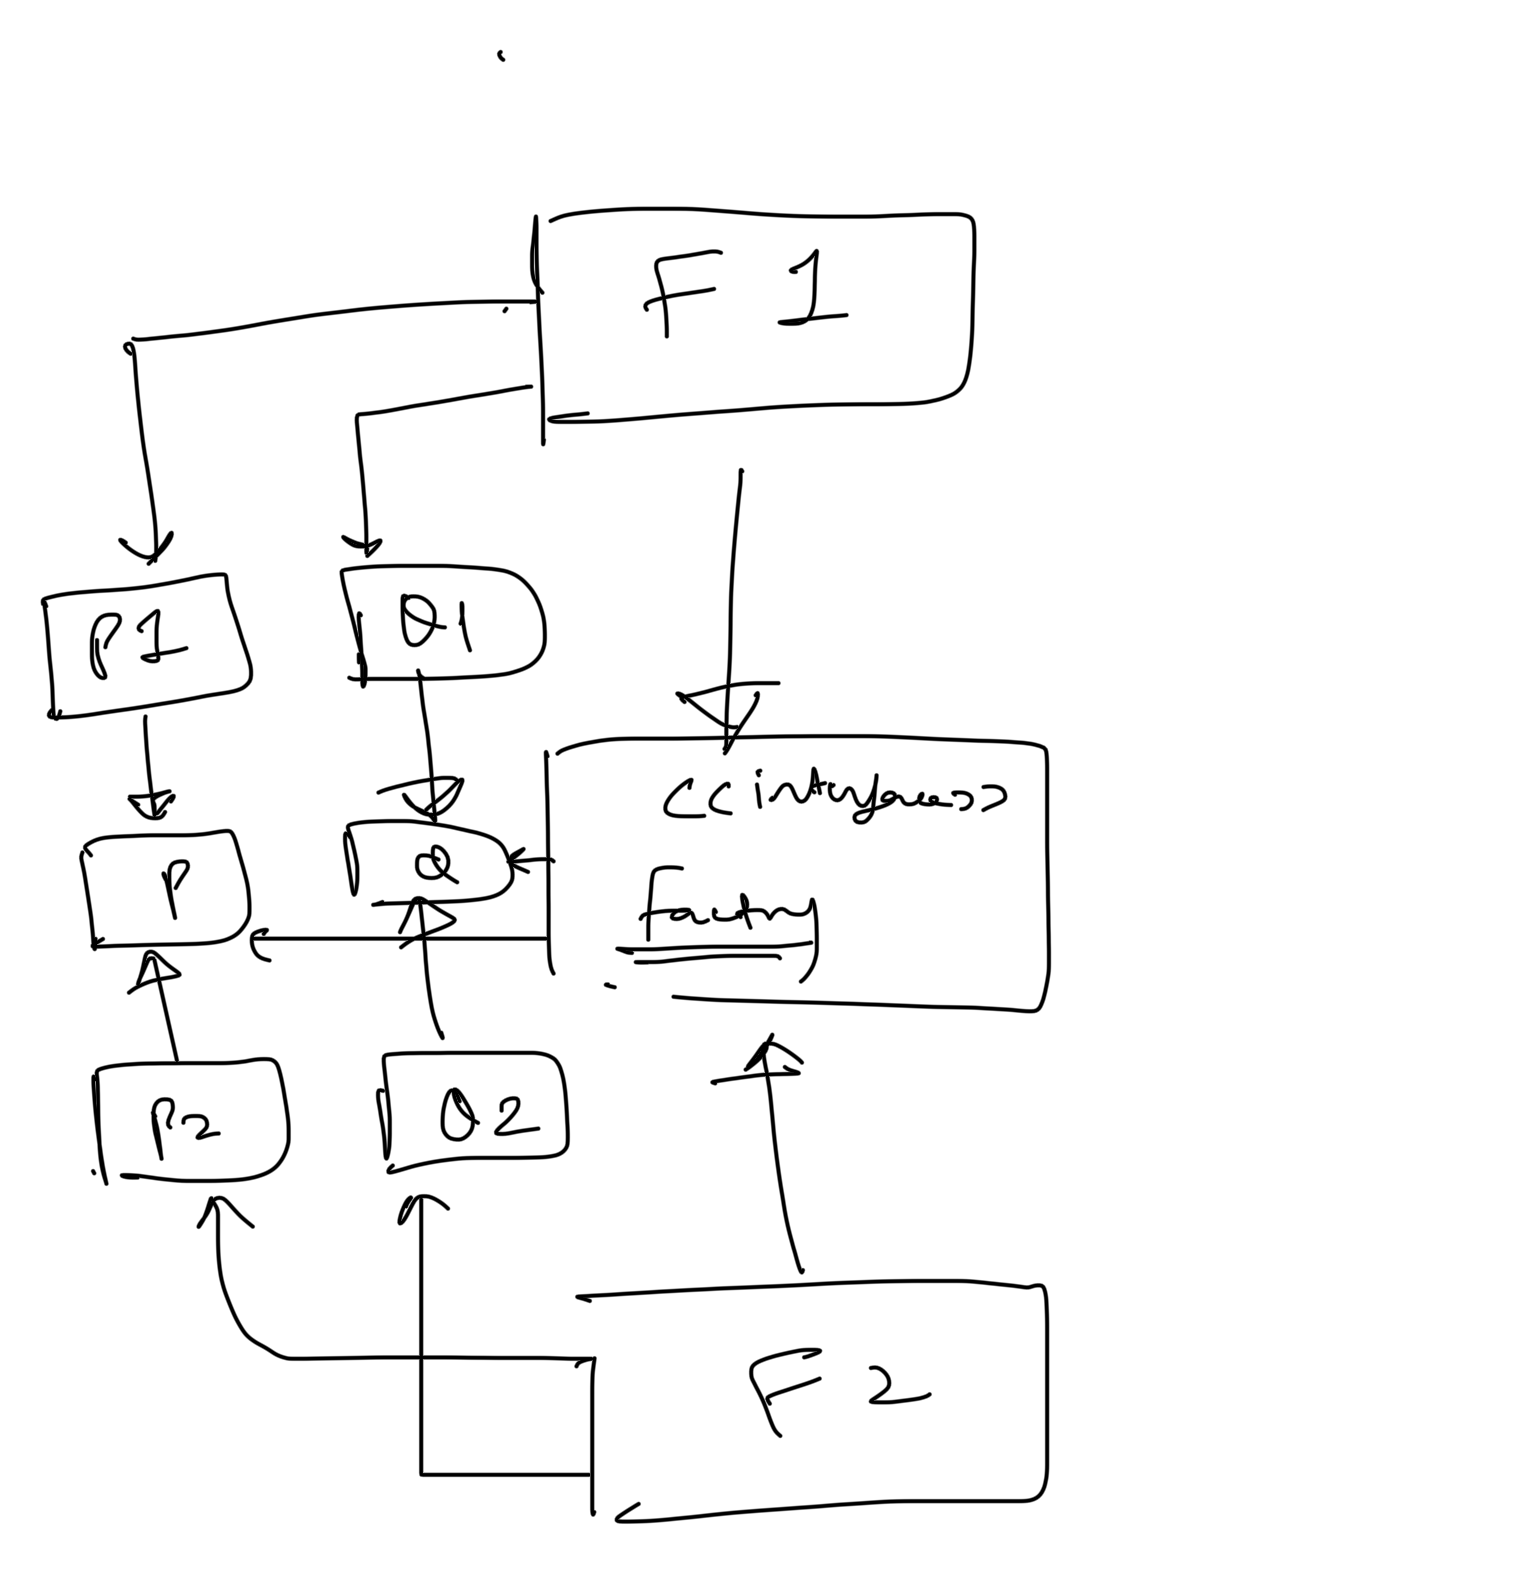 F 1
P1
Q1
<<interface>>
P
Q
Factory
P2
Q2
F 2